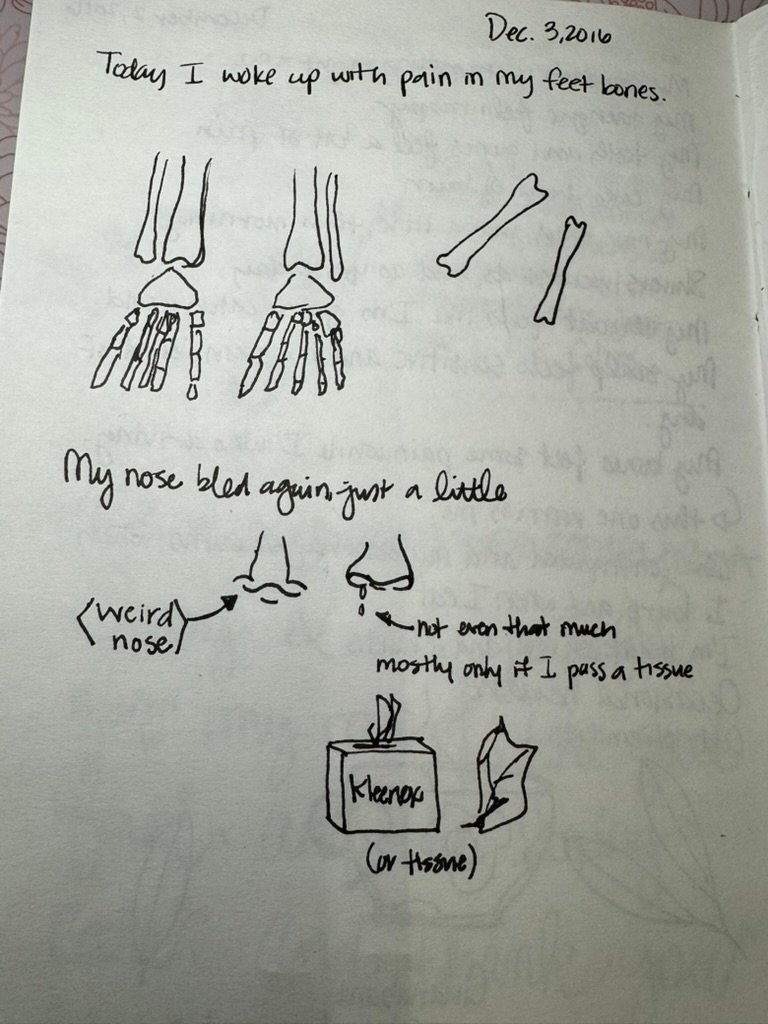 Dec. 3, 2016
Today I woke up with pain in my feet bones.
My nose bled again, just a little
(weird
nose)
not even that much
mostly only if I pass a tissue
Kleenex
(or tissue)